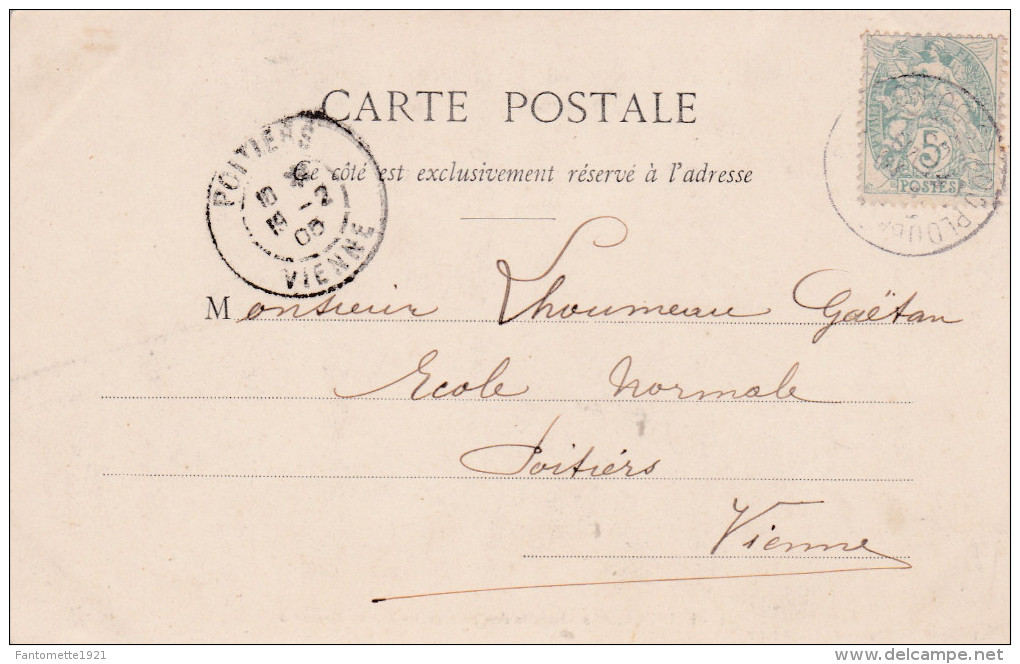 CARTE POSTALE
Ce côté est exclusivement réservé à l'adresse
POITIERS
VIENNE
5
POSTES
Monsieur Lhoumeau Gaëtan
Ecole Normale
Poitiérs
Vienne
Fantomette1921
delcampe.net